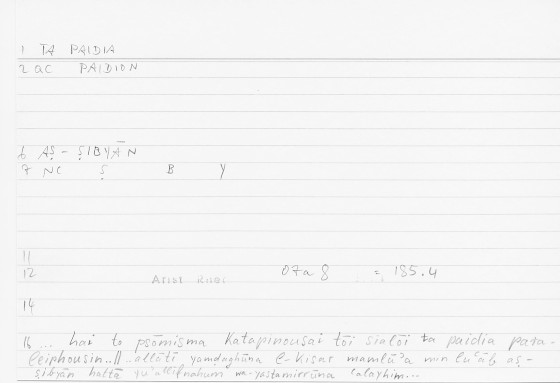 1 TA PAIDIA
2 ac PAIDION
6 AṢ-ṢIBYĀN
7 NC Ṣ B Y
11
12 Arist Rhet 07a8 = 185.4
14
16 ... hai to psōmisma Katapinousai tōi sialōi ta paidia para-
leiphousin..||..allātī yamḍaghūna l-kisar mamlūʾa min luʿāb aṣ-
ṣibyān ḥattā yuʾallifnahum wa-yastamirrūna ʿalayhim...